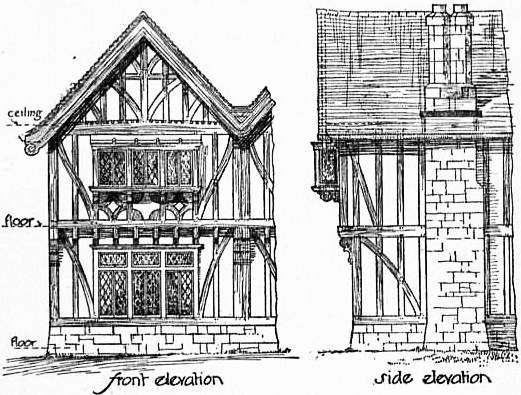 ceiling
floor
floor
front elevation
side elevation